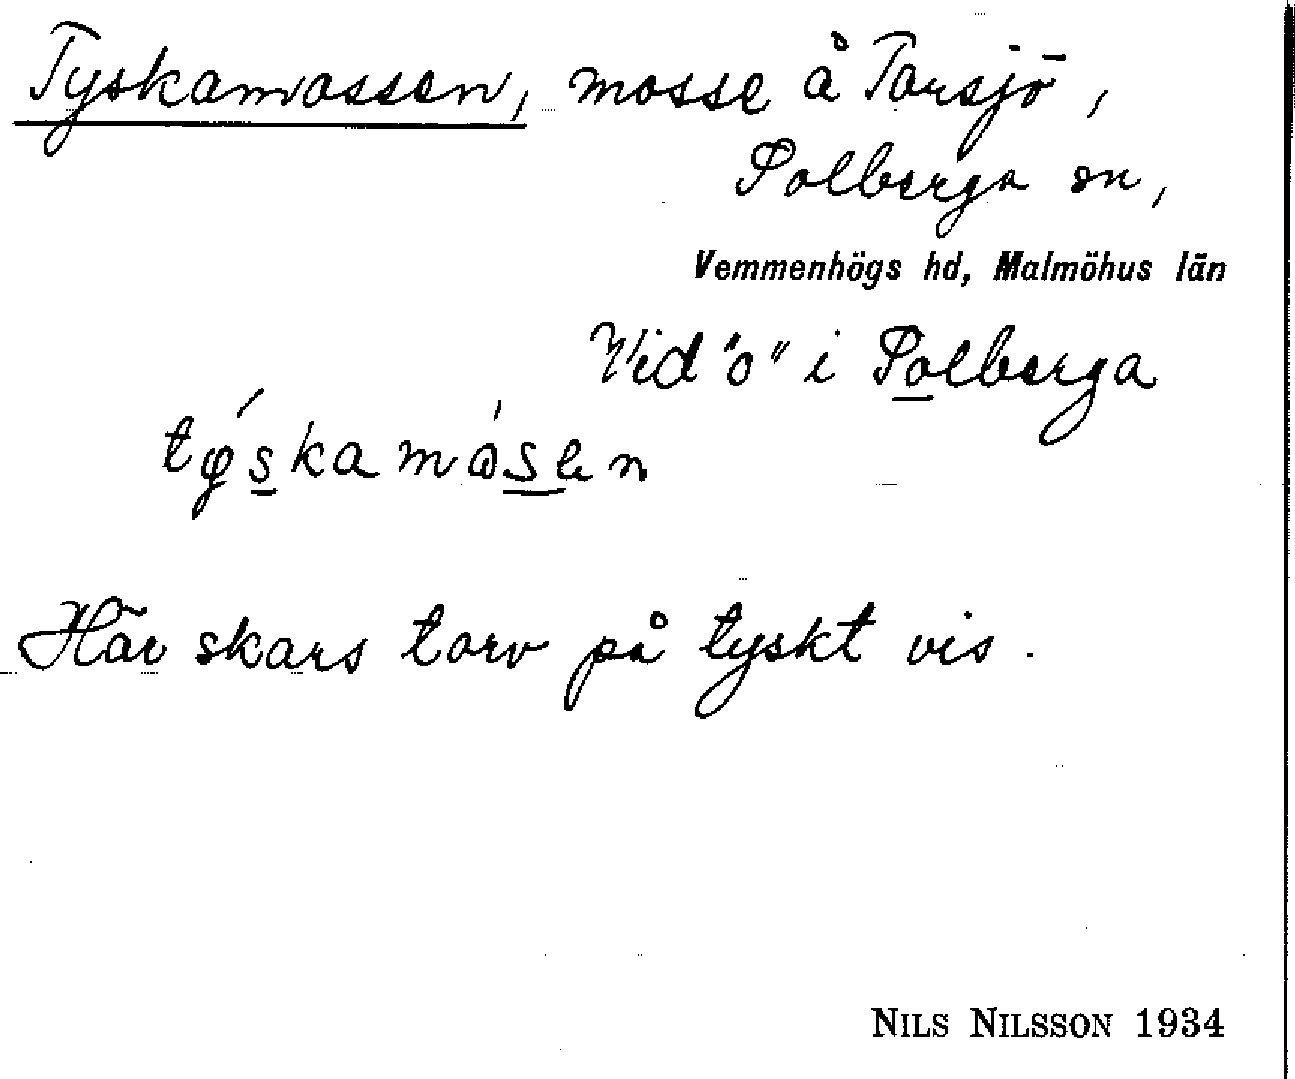 Tyskamossen, mosse å Torsjö,
Solberga sn,
Vemmenhögs hd, Malmöhus län
Vid "o" i Solberga
Här skars torv på tyskt vis.
NILS NILSSON 1934